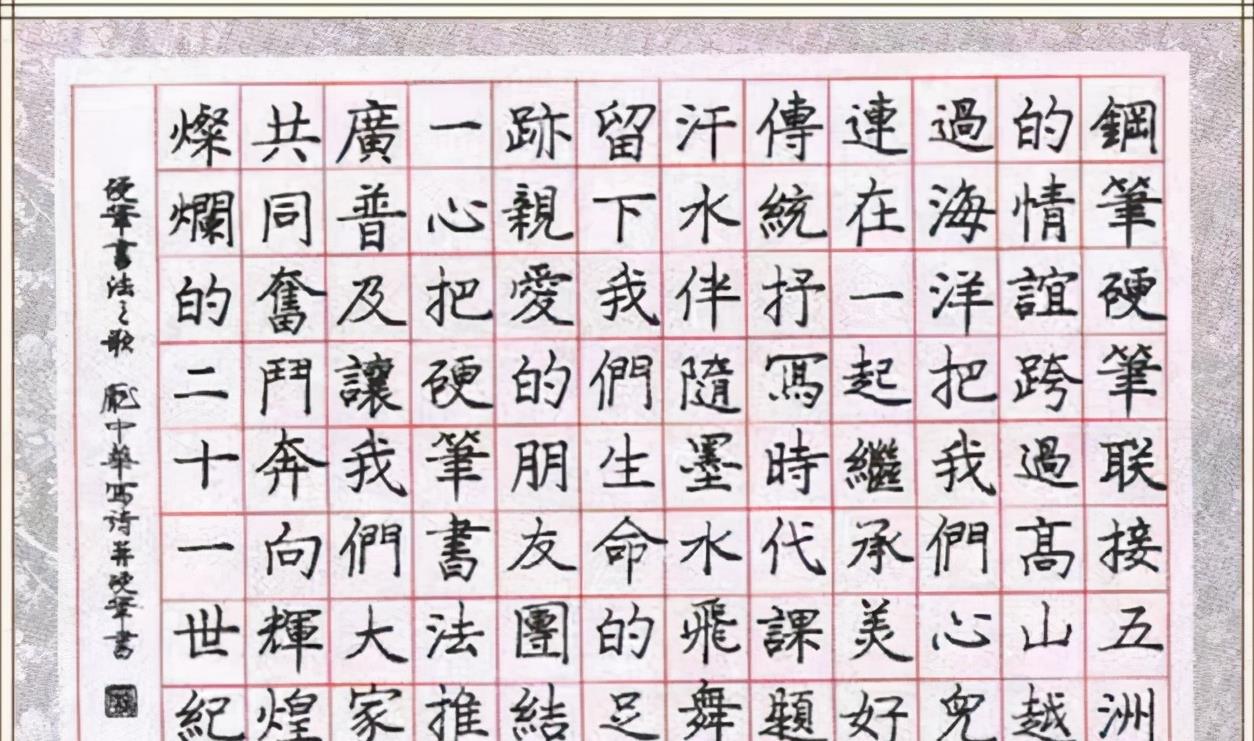 鋼筆硬筆联接五洲
的情誼跨過高山越
過海洋把我們心兒
連在一起繼承美好
傳統抒寫時代課題
汗水伴隨墨水飛舞
留下我們生命的足
跡親愛的朋友團結
一心把硬筆書法推
廣普及讓我們大家
共同奮鬥奔向輝煌
燦爛的二十一世紀
硬筆書法之歌 龐中華写詩并硬筆書